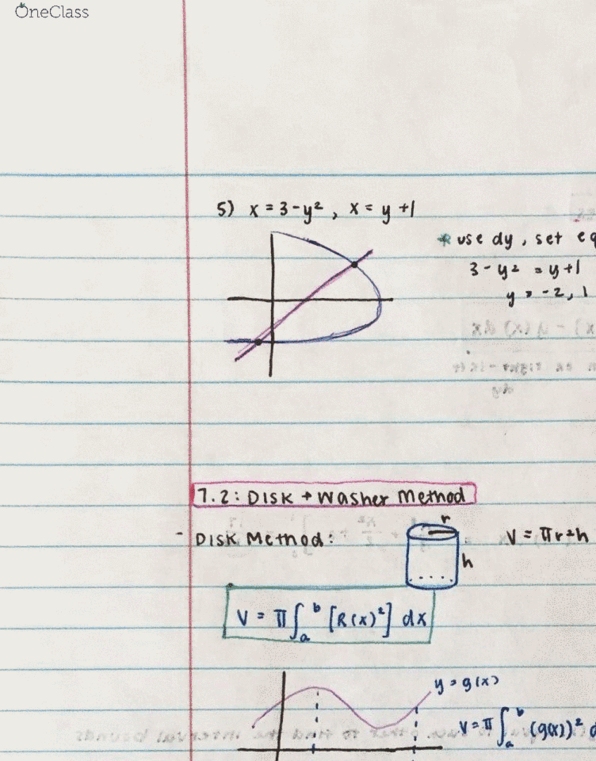 OneClass
5) x = 3 - y², x = y + 1
* use dy, set eq
3 - y² = y + 1
y = -2, 1
7.2: Disk + Washer Method
- Disk Method:
r
h
V = πr²h
V = π∫ₐᵇ [R(x)²] dx
y = g(x)
V = π∫ₐᵇ (g(x))² d